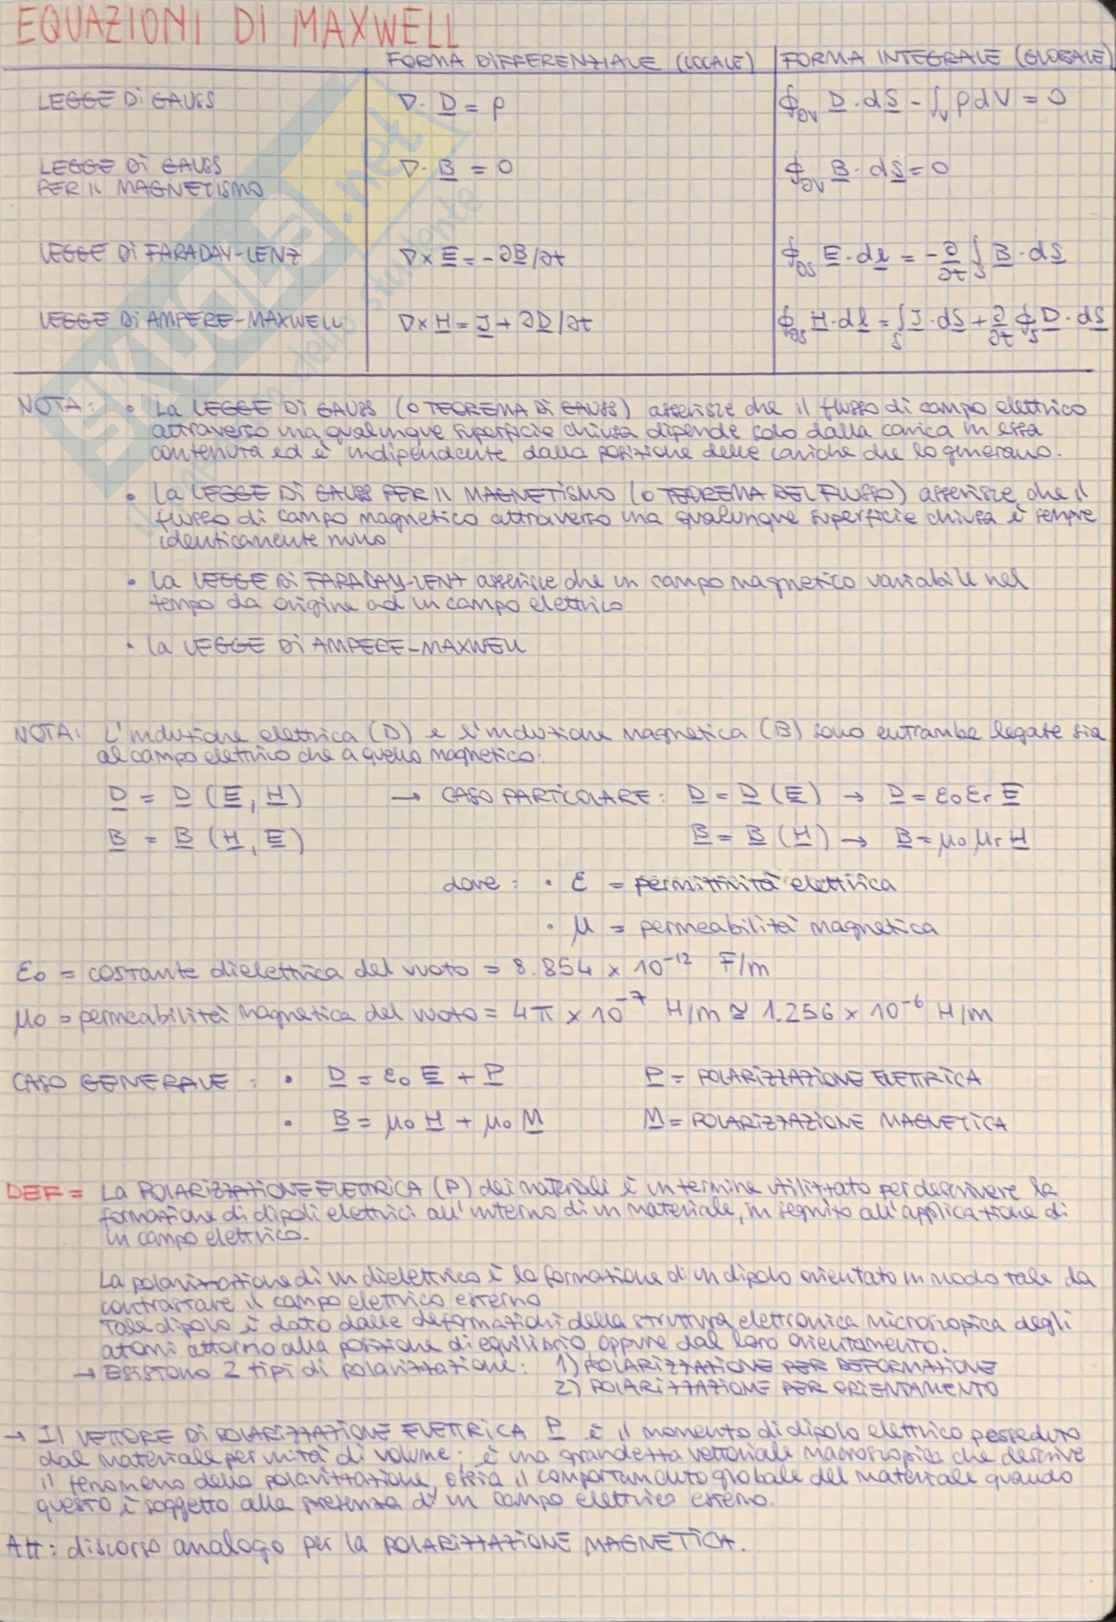 EQUAZIONI DI MAXWELL
FORMA DIFFERENZIALE (LOCALE) FORMA INTEGRALE (GLOBALE)
LEGGE DI GAUSS ∇· D = ρ ∮∂V D · dS - ∫V ρ dV = 0
LEGGE DI GAUSS PER IL MAGNETISMO ∇· B = 0 ∮∂V B · dS = 0
LEGGE DI FARADAY-LENZ ∇× E = -∂B/∂t ∮∂S E · dl = -∂/∂t ∫S B · dS
LEGGE DI AMPERE-MAXWELL ∇× H = J + ∂D/∂t ∮∂S H · dl = ∫S J · dS + ∂/∂t ∮S D · dS
NOTA: • La LEGGE DI GAUSS (O TEOREMA DI GAUSS) asserisce che il flusso di campo elettrico
attraverso una qualunque superficie chiusa dipende solo dalla carica in essa
contenuta ed è indipendente dalla posizione delle cariche che lo generano.
• La LEGGE DI GAUSS PER IL MAGNETISMO (O TEOREMA DEL FLUSSO) asserisce che il
flusso di campo magnetico attraverso una qualunque superficie chiusa è sempre
identicamente nullo
• La LEGGE DI FARADAY-LENZ asserisce che un campo magnetico variabile nel
tempo da origine ad un campo elettrico
• la LEGGE DI AMPERE-MAXWELL
NOTA: L'induzione elettrica (D) e l'induzione magnetica (B) sono entrambe legate sia
al campo elettrico che a quello magnetico:
D = D (E, H) → CASO PARTICOLARE: D = D (E) → D = ε0 εr E
B = B (H, E) B = B (H) → B = μ0 μr H
dove: • ε = permittività elettrica
• μ = permeabilità magnetica
ε0 = costante dielettrica del vuoto = 8.854 × 10⁻¹² F/m
μ0 = permeabilità magnetica del vuoto = 4π × 10⁻⁷ H/m ≃ 1.256 × 10⁻⁶ H/m
CASO GENERALE: • D = ε0 E + P P = POLARIZZAZIONE ELETTRICA
• B = μ0 H + μ0 M M = POLARIZZAZIONE MAGNETICA
DEF = La POLARIZZAZIONE ELETTRICA (P) dei materiali è un termine utilizzato per descrivere la
formazione di dipoli elettrici all'interno di un materiale, in seguito all'applicazione di
un campo elettrico.
La polarizzazione di un dielettrico è la formazione di un dipolo orientato in modo tale da
contrastare il campo elettrico esterno
Tale dipolo è dato dalle deformazioni della struttura elettronica microscopica degli
atomi attorno alla posizione di equilibrio, oppure dal loro orientamento.
→ Esistono 2 tipi di polarizzazione: 1) POLARIZZAZIONE PER DEFORMAZIONE
2) POLARIZZAZIONE PER ORIENTAMENTO
→ Il VETTORE DI POLARIZZAZIONE ELETTRICA P è il momento di dipolo elettrico posseduto
dal materiale per unità di volume; è una grandezza vettoriale macroscopica che descrive
il fenomeno della polarizzazione, ossia il comportamento globale del materiale quando
questo è soggetto alla presenza di un campo elettrico esterno.
Att: discorso analogo per la POLARIZZAZIONE MAGNETICA.